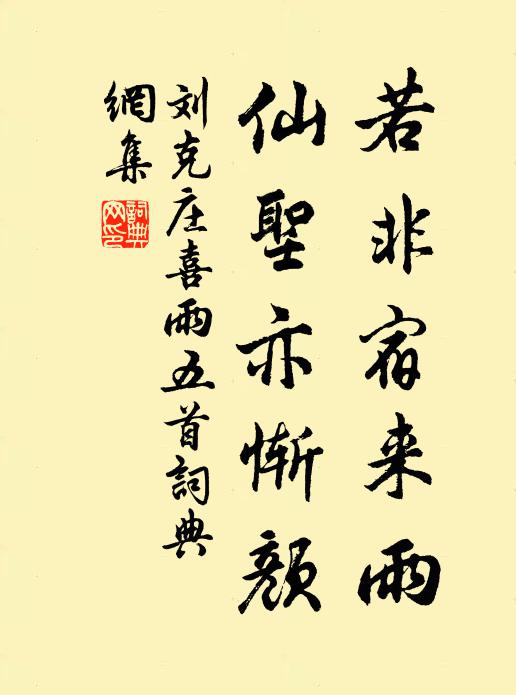 若非宿来雨
仙聖亦惭顔
刘克庄喜雨五首詞典
網集
詞典
网印